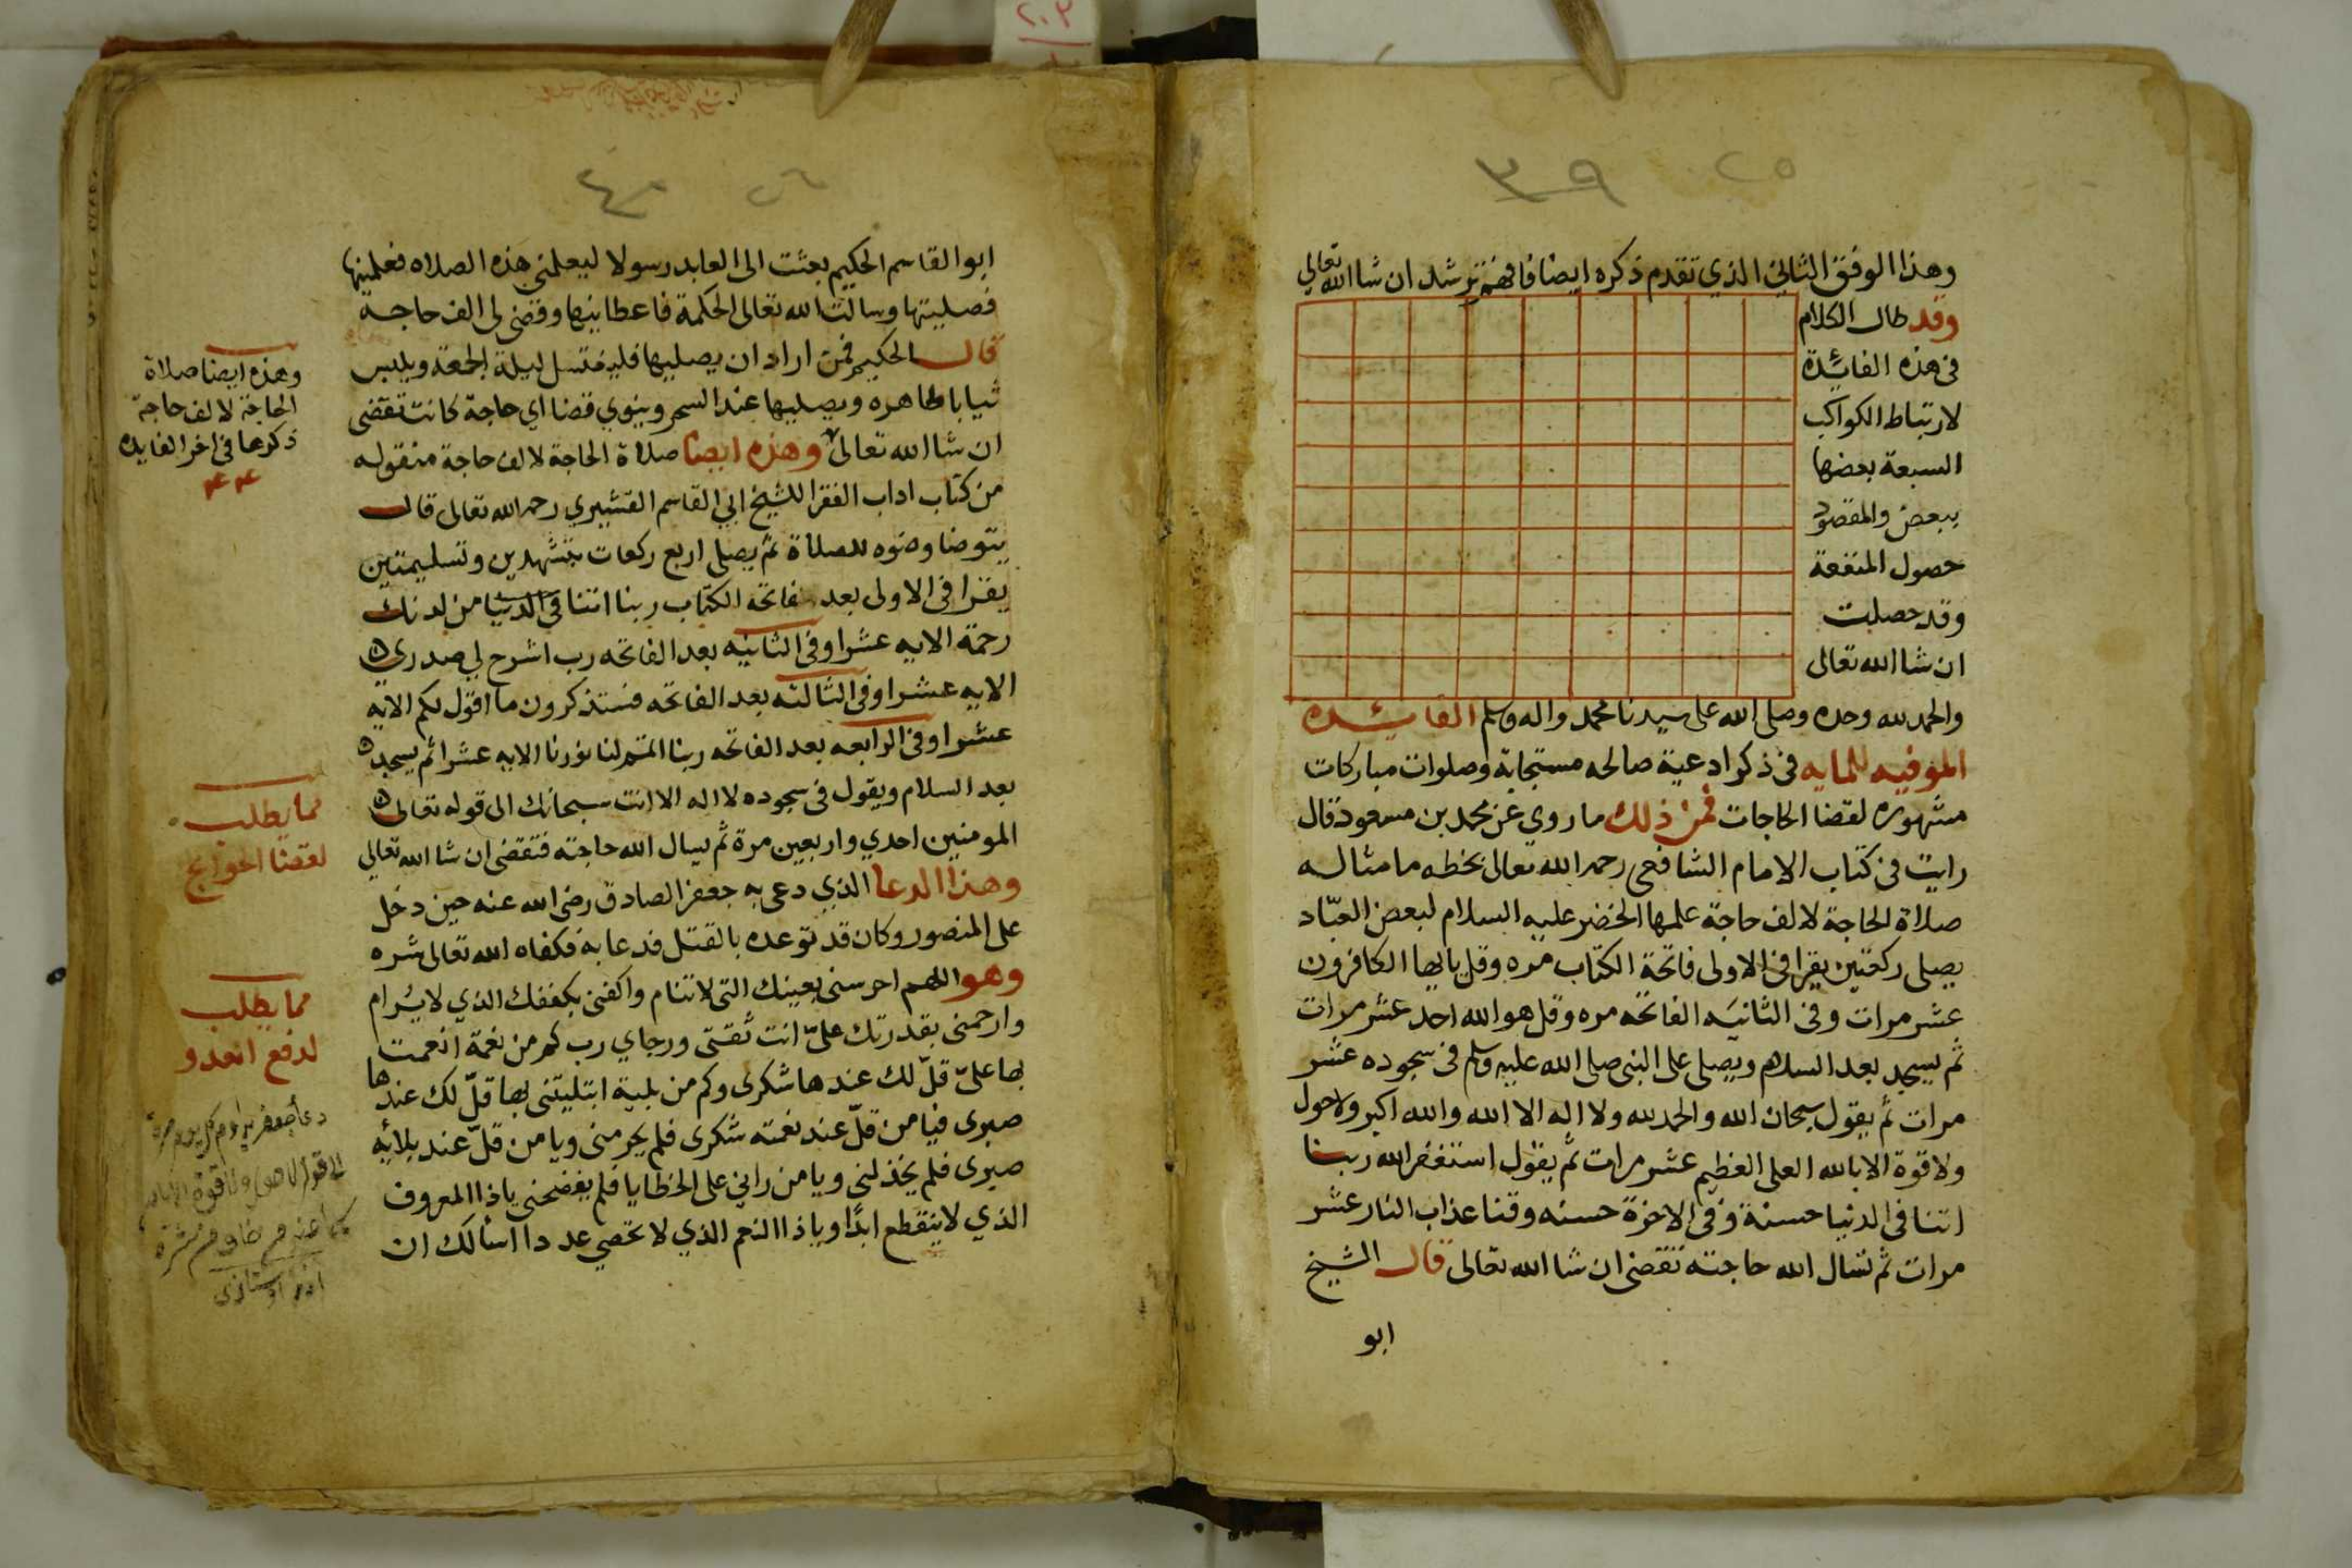 ٣٩
٢٥
وهذا الوفق الثاني الذي تقدم ذكره ايضا فافهم ترشد ان شا الله تعالى
وقد طال الكلام
في هذه الفائدة
لارتباط الكواكب
السبعة بعضها
ببعض والمقصود
حصول المنفعة
وقد حصلت
ان شا الله تعالى
والحمد لله وحده وصلى الله على سيدنا محمد واله وسلم الفائده
الموفيه للمايه في ذكر ادعية صالحه مستجابة وصلوات مباركات
مشهوره لقضا الحاجات فمن ذلك ما روي عن محمد بن مسعود قال
رايت في كتاب الامام الشافعي رحمه الله تعالى بخطه ما مثاله
صلاة الحاجة لالف حاجة علمها الخضر عليه السلام لبعض العبّاد
يصلى ركعتين يقرا في الاولى فاتحة الكتاب مره وقل يا ايها الكافرون
عشر مرات وفي الثانيه الفاتحه مره وقل هو الله احد عشر مرات
ثم يسجد بعد السلام ويصلى على النبي صلى الله عليه وسلم في سجوده عشر
مرات ثم يقول سبحان الله والحمد لله ولا اله الا الله والله اكبر ولا حول
ولا قوة الا بالله العلى العظيم عشر مرات ثم يقول استغفر الله ربنا
اتنا في الدنيا حسنة وفي الاخرة حسنه وقنا عذاب النار عشر
مرات ثم تسال الله حاجته تقضى ان شا الله تعالى قال الشيخ
ابو
٤٠
٢٦
ابو القاسم الحكيم بعثت الى العابد رسولا ليعلمني هذه الصلاه فعلمنيها
فصليتها وسالت الله تعالى الحكمة فاعطانيها وقضى لى الف حاجة
قال الحكيم فمن اراد ان يصليها فليغتسل ليلة الجمعة ويلبس
ثيابا طاهره ويصليها عند السحر وينوي قضا اي حاجة كانت تقضى
ان شا الله تعالى وهذه ايضا صلاة الحاجة لالف حاجة منقوله
من كتاب اداب الفقرا للشيخ ابي القاسم القشيري رحمه الله تعالى قال
يتوضا وضوه للصلاة ثم يصلى اربع ركعات بتشهدين وتسليمتين
يقرا في الاولى بعد فاتحة الكتاب ربنا اتنا في الدنيا من لدنك
رحمة الايه عشرا وفي الثانيه بعد الفاتحه رب اشرح لي صدري
الايه عشرا وفي الثالثه بعد الفاتحه فستذكرون ما اقول لكم الايه
عشرا وفي الرابعه بعد الفاتحه ربنا اتمم لنا نورنا الايه عشرا ثم يسجد
بعد السلام ويقول في سجوده لا اله الا انت سبحانك الى قوله تعالى
المومنين احدي واربعين مرة ثم يسال الله حاجته فتقضى ان شا الله تعالي
وهذا الدعا الذي دعى به جعفر الصادق رضى الله عنه حين دخل
على المنصور وكان قد توعده بالقتل فدعا به فكفاه الله تعالى شره
وهو اللهم احرسنى بعينك التى لا تنام واكفنى بكففك الذي لا يُرام
وارحمنى بقدرتك علىّ انت ثقتى ورجاي رب كم من نعمة انعمت
بها علىّ قلّ لك عندها شكرى وكم من بلية ابتليتنى بها قلّ لك عندها
صبرى فيا من قلّ عند نعمته شكرى فلم يحرمنى ويا من قلّ عند بلائه
صبرى فلم يخذلنى ويا من راني على الخطايا فلم يفضحنى يا ذا المعروف
الذي لا ينقطع ابدًا ويا ذا النعم الذي لا تحصي عددا اسألك ان
وهذه ايضا صلاة
الحاجة لالف حاجة
ذكرها في اخر الفايده
مما يطلب
لقضا الحوايج
مما يطلب
لدفع العدو